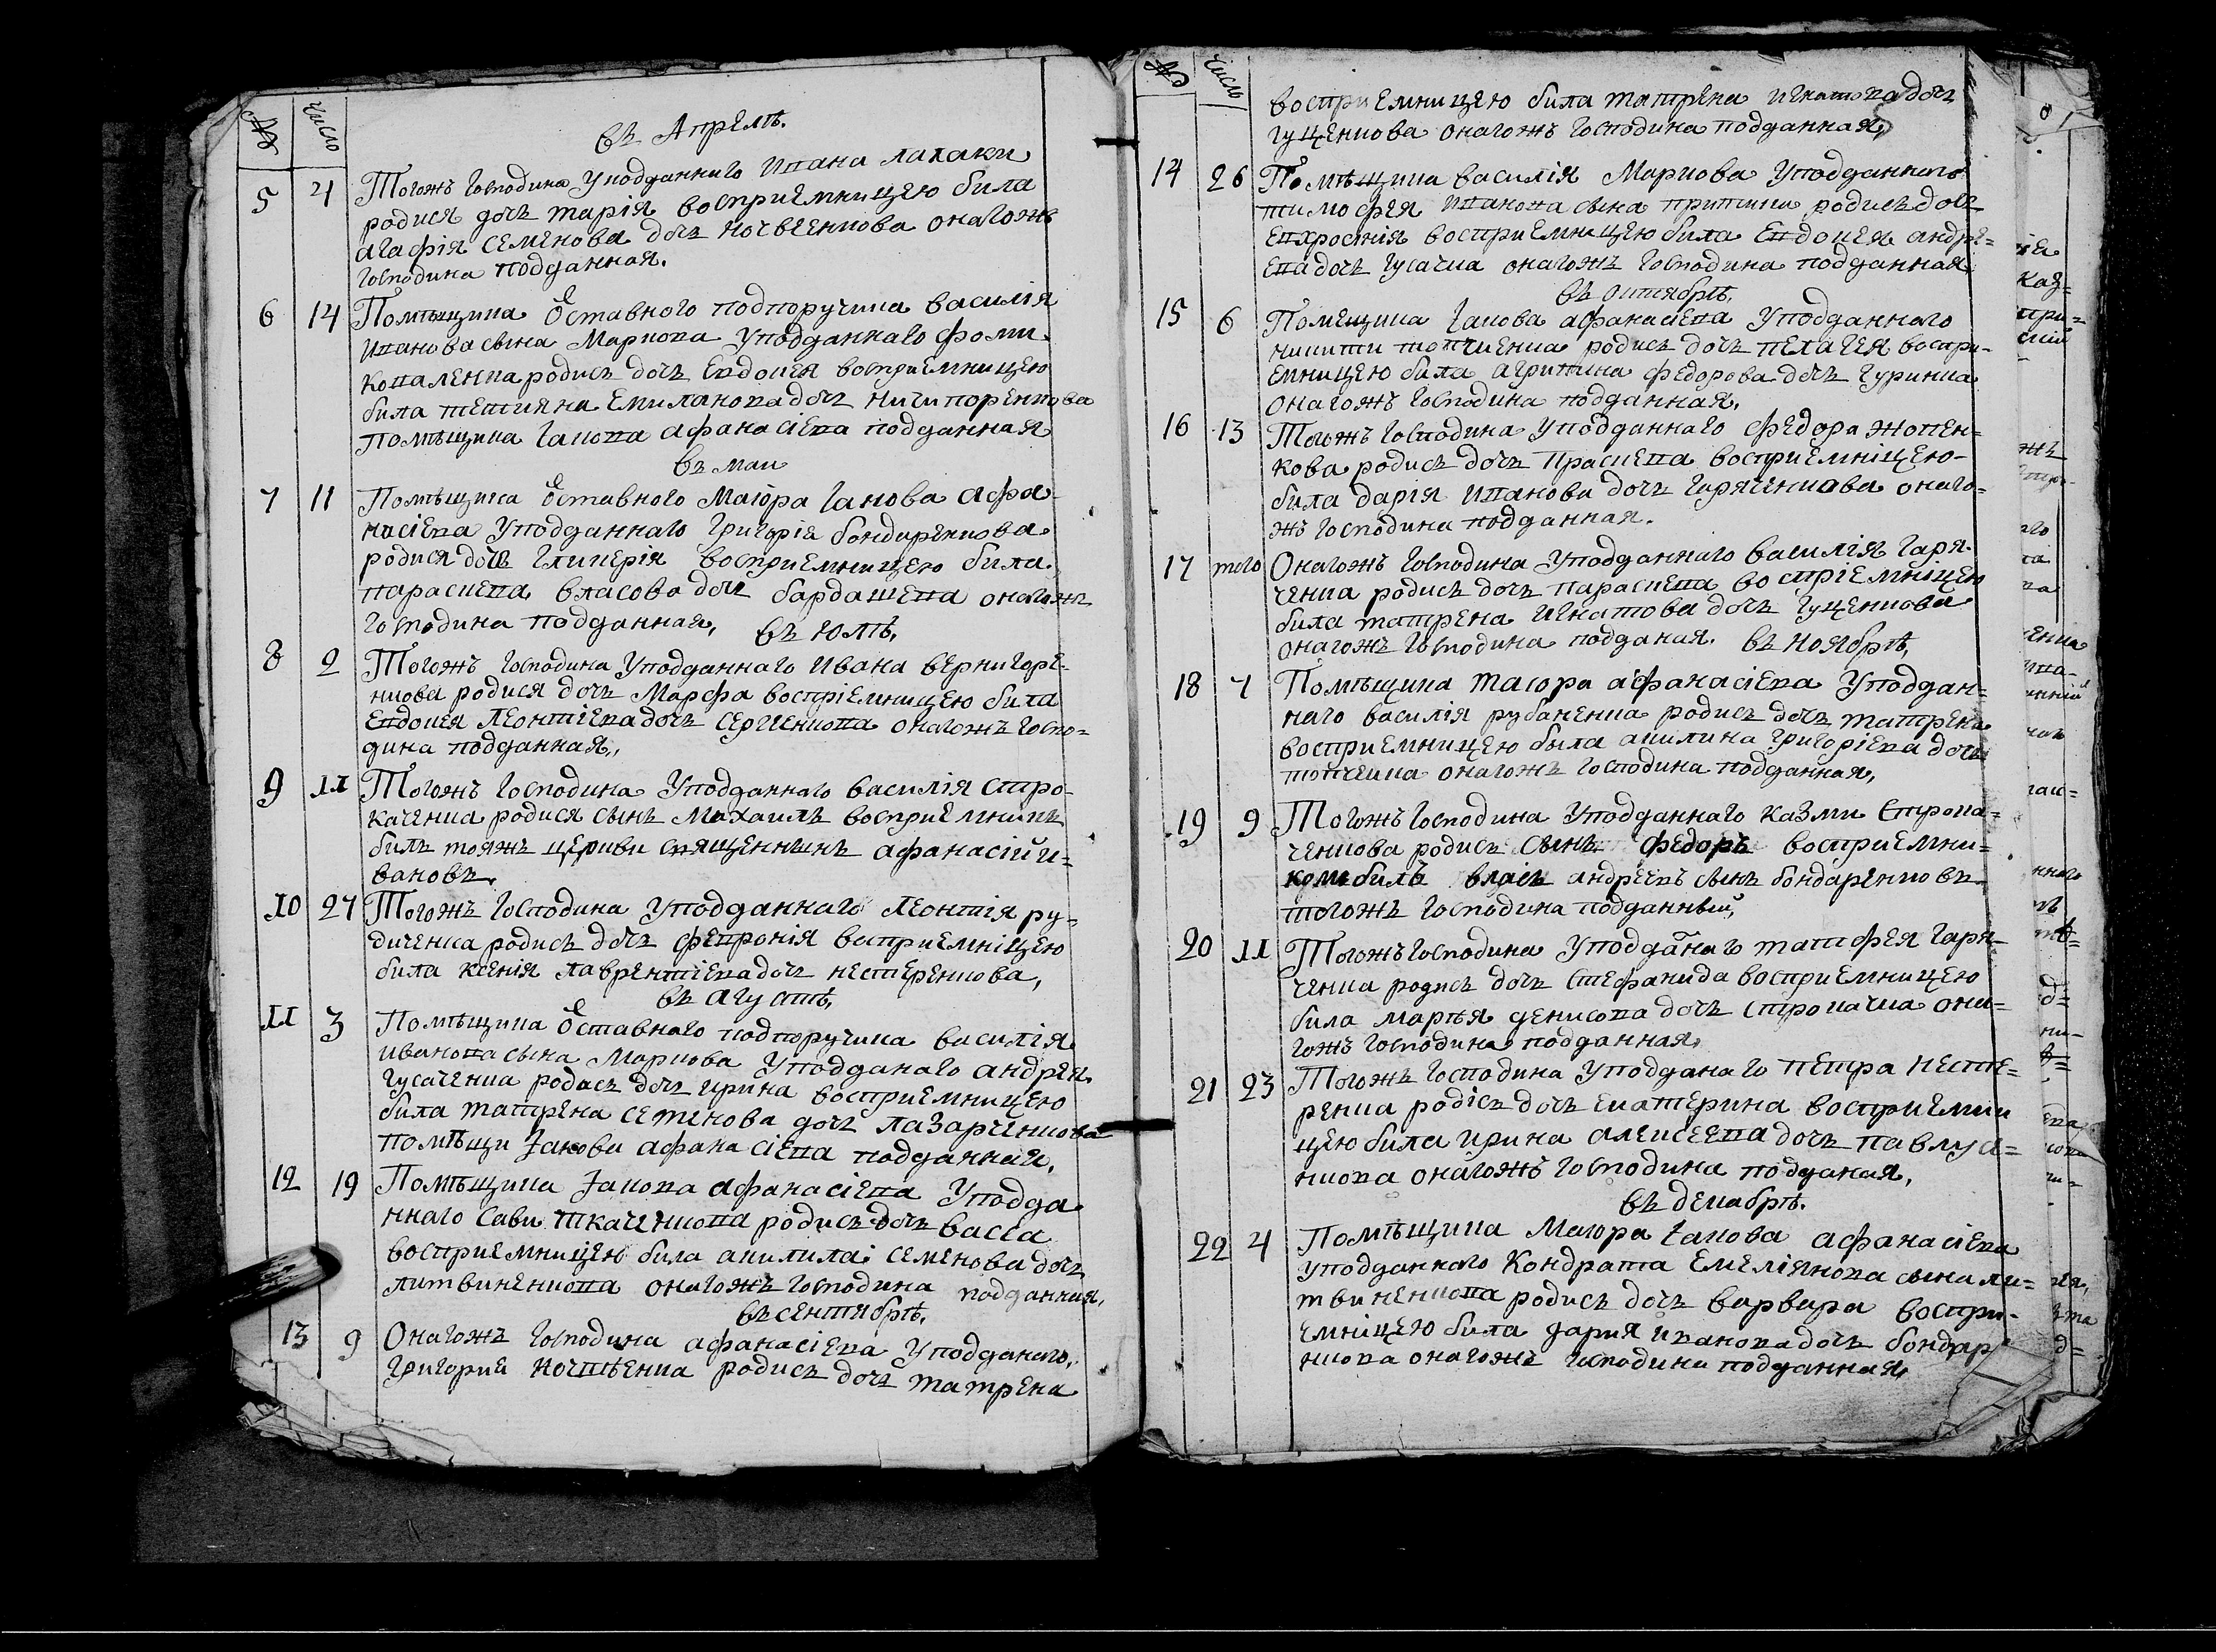 № Число
въ Апрелѣ.
5 4 Тогожъ Господина Уподданнаго Ивана
родися дочь марія восприемницею била
агафія Семенова дочь онагожъ
Господина подданная.
6 14 Помѣщика Оставного подпоручика василія
Иванова сына Маркова Уподданнаго фоми
коваленка родись дочь Евдокея восприемницею
била тетияна Емиланова дочь ничипоренкова
помѣщика Іакова афанасіева подданная
въ маи
7 11 Помѣщика Оставного Маіора Іакова Афа-
насіева Уподданнаго Григорія бондаренкова
родися дочь гликерія восприемницею била
параскева власова дочь бардашева онагожъ
Господина подданная, въ Юлѣ,
8 2 Тогожъ Господина Уподданнаго Ивана вернигоре-
нкова родися дочь Марфа воспріемницею била
Евдокея Леонтіева дочь сергиенкова онагожъ госпо-
дина подданная,
9 11 Тогожъ Господина Уподданнаго василія стро-
каченка родися сынъ Михаилъ восприемникъ
билъ тояжъ церкви священникъ афанасій и-
вановъ.
10 27 Тогожъ Господина Уподданнаго Леонтія ру-
диченка родись дочь февронія восприемніцею
била ксенія лаврентіева дочь нестеренкова,
въ агустѣ,
11 3 Помѣщика Оставного подпоручика василія
иванова сына Маркова Уподданаго андрея
гусаченка родись дочь ирина восприемницею
била матрена семенова дочь лазарченкова
помѣщи Іакови афанасіева подданная,
12 19 Помѣщика Іакова афанасіева Уподда
ннаго Сави ткаченкова родись дочь васса
восприемницею била акилина семенова дочь
литвиненкова онагожъ Господина подданная,
въ сентябрѣ,
13 9 Онагожъ Господина афанасіева Уподданаго,
Григория родись дочь матрена
№ Число
восприемницею била матрена игнатова дочь
гуценкова онагожъ Господина подданная,
14 26 Помѣщика василія Маркова Уподданнаго
тимофея иванова сына притики родись дочь
Евхросинія восприемницею била Евдокея андре=
ева дочь гусачка онагожъ Господина подданная
въ октябрѣ,
15 6 Помещика Іакова афанасіева Уподданнаго
никити топчиенка родись дочь пелагея воспри-
емницею била агрипина федорова дочь гуринка
онагожъ Господина подданная,
16 13 Тогожъ Господина Уподданнаго федора жопен-
кова родись дочь Праскева восприемніцею-
била дарія иванова дочь гаряченкова онаго-
жъ Господина подданная.
17 того Онагожъ Господина Уподданнаго василія гаря-
ченка родись дочь параскева воспріемніцею
била матрена игнатова дочь гуценкова
онагожъ Господина подданая. въ ноябрѣ,
18 7 Помѣщика маіора афанасіева Уподдан=
наго василія рубаненка родись дочь матрена
восприемницею была акилина григоріева дочь
топченка онагожъ Господина подданная,
19 9 Тогожъ Господина Уподданнаго казми Строка-
ченкова родись сынъ федоръ восприемни=
комъ билъ власъ андреевъ сынъ бондаренковъ
тогожъ Господина подданный,
20 11 Тогожъ Господина Уподданаго матфея гаря-
ченка родись дочь стефанида восприемницею
била марья денисова дочь строкачка она=
гожъ Господина подданная,
21 23 Тогожъ Господина Уподданаго петра несте=
ренка родісь дочь екатерина восприемни
цею била ирина алексеева дочь павлуся=
нкова онагожъ Господина подданая,
въ декабрѣ.
22 4 Помѣщика Маіора Іакова афанасіева
уподданнаго Кондрата Емеліянова сына ли-
твиненкова родись дочь варвара воспри-
емніцею била дария иванова дочь бондар
нкова онагожъ Господина подданная,